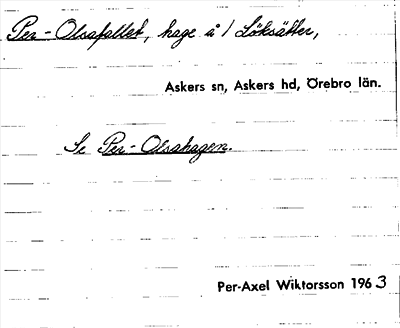 Per-Olsafallet, hage å 1 Löksätter,
Askers sn, Askers hd, Örebro län.
Se Per-Olsahagen.
Per-Axel Wiktorsson 1963